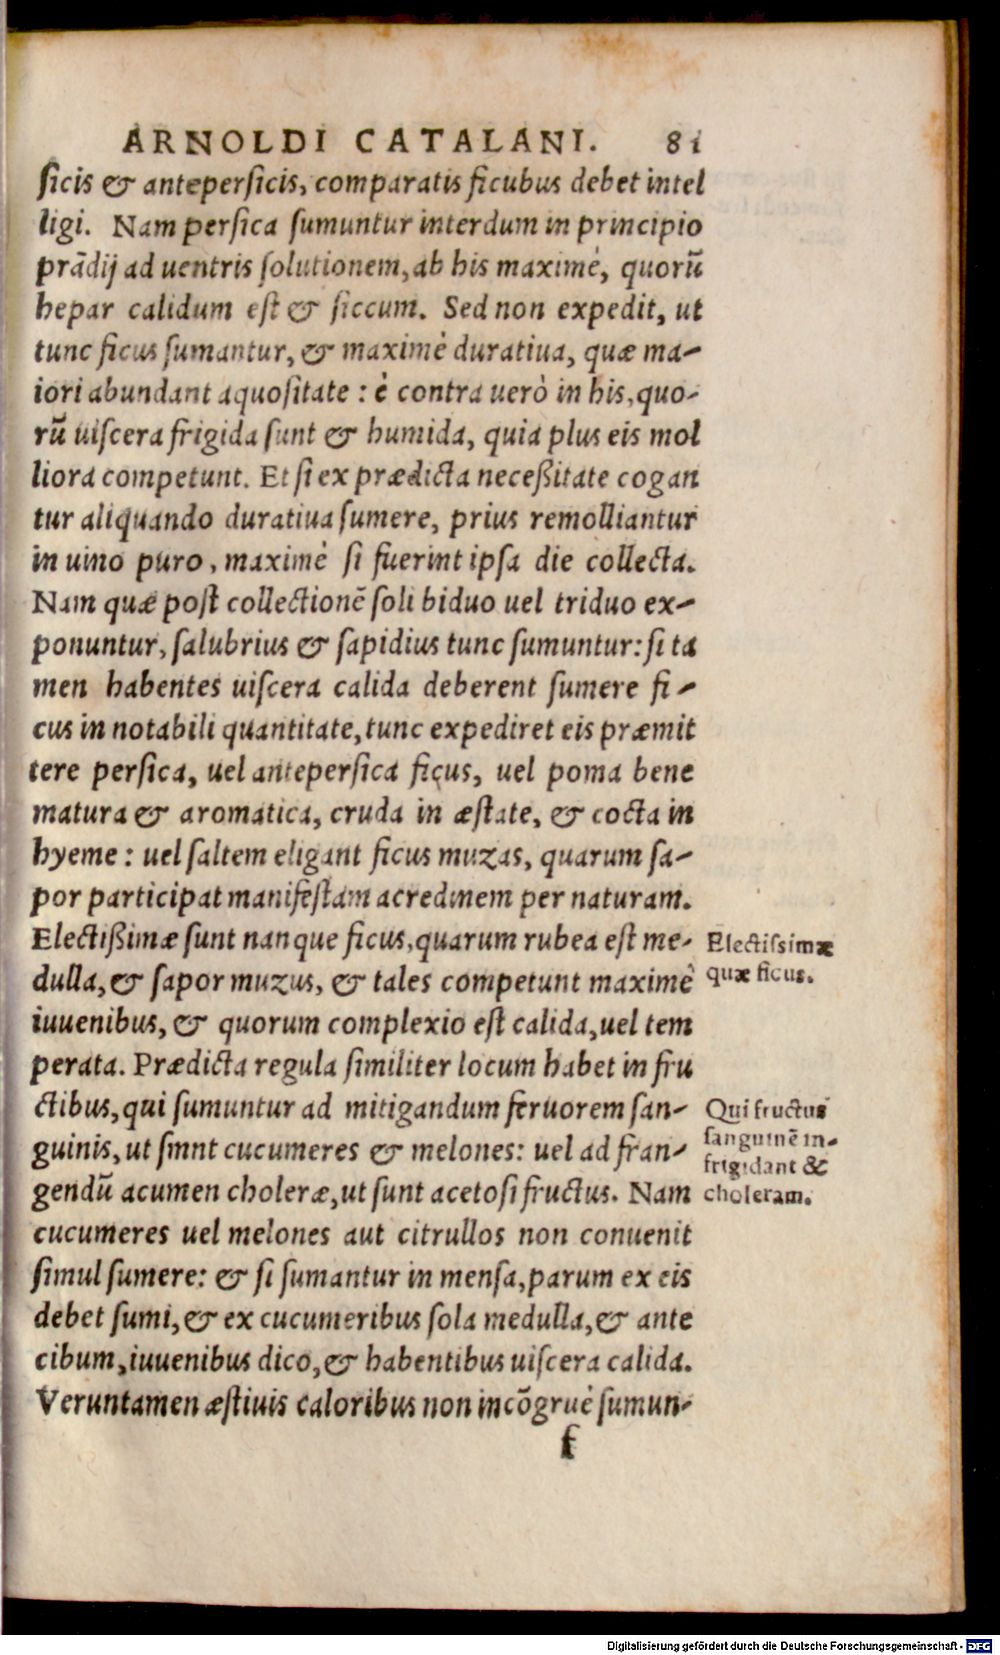 ARNOLDI CATALANI. 81
sicis & antepersicis, comparatis ficubus debet intel
ligi. Nam persica sumuntur interdum in principio
prādij ad uentris solutionem, ab his maximè, quorū
hepar calidum est & siccum. Sed non expedit, ut
tunc ficus sumantur, & maximè duratiua, quæ ma-
iori abundant aquositate : è contra uerò in his, quo-
rū uiscera frigida sunt & humida, quia plus eis mol
liora competunt. Et si ex prædicta neceßitate cogan
tur aliquando duratiua sumere, prius remolliantur
in uino puro, maximè si fuerint ipsa die collecta.
Nam quæ post collectionē soli biduo uel triduo ex-
ponuntur, salubrius & sapidius tunc sumuntur: si ta
men habentes uiscera calida deberent sumere fi-
cus in notabili quantitate, tunc expediret eis præmit
tere persica, uel antepersica ficus, uel poma bene
matura & aromatica, cruda in æstate, & cocta in
hyeme : uel saltem eligant ficus muzas, quarum sa-
por participat manifestam acredinem per naturam.
Electißimæ sunt nanque ficus, quarum rubea est me-
dulla, & sapor muzus, & tales competunt maximè
iuuenibus, & quorum complexio est calida, uel tem
perata. Prædicta regula similiter locum habet in fru
ctibus, qui sumuntur ad mitigandum feruorem san-
guinis, ut sunt cucumeres & melones: uel ad fran-
gendū acumen choleræ, ut sunt acetosi fructus. Nam
cucumeres uel melones aut citrullos non conuenit
simul sumere: & si sumantur in mensa, parum ex eis
debet sumi, & ex cucumeribus sola medulla, & ante
cibum, iuuenibus dico, & habentibus uiscera calida.
Veruntamen æstiuis caloribus non incōgruè sumun-
f
Electissimæ
quæ ficus.
Qui fructus
sanguinē in-
frigidant &
choleram.
Digitalisierung gefördert durch die Deutsche Forschungsgemeinschaft - DFG